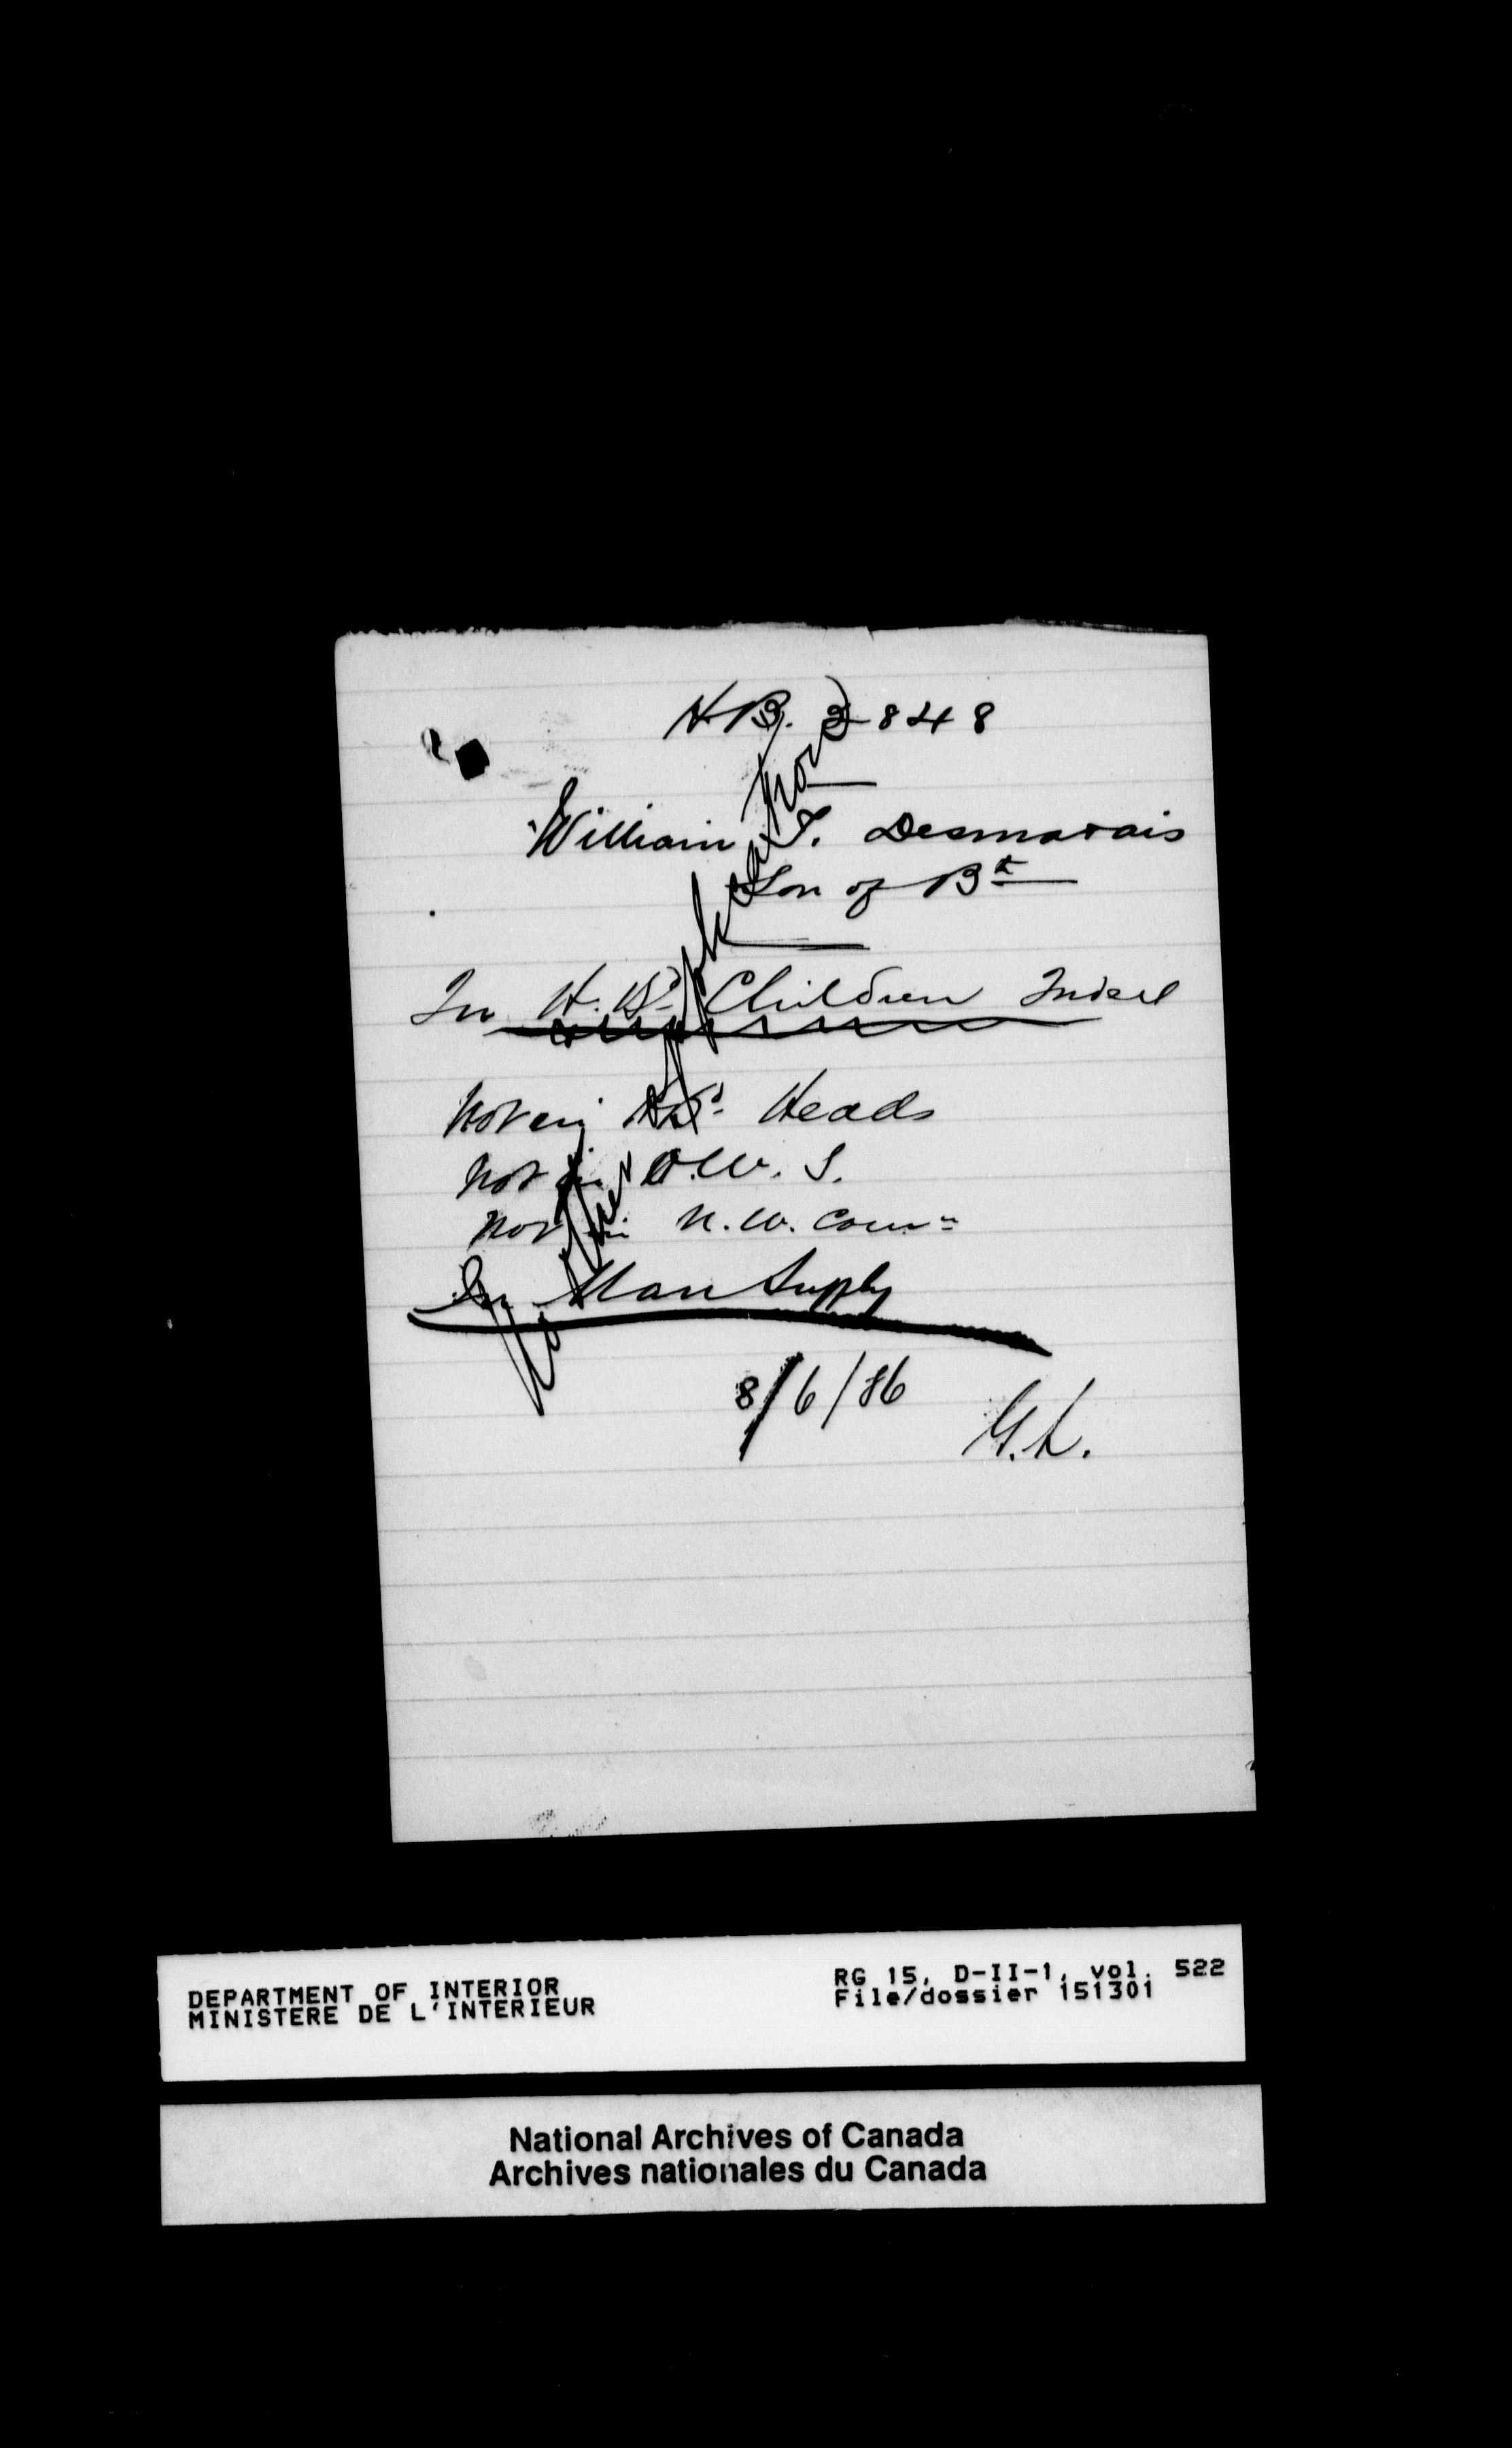 H.B. 2848
William T. Desmarais
Son of Bt
In H.Bd Children Index
Not in H.Bd Heads
Not in O.W.S.
Not in N.W. Coun=
In Man Supply
8/6/86
G.L.
No further application
DEPARTMENT OF INTERIOR
MINISTERE DE L'INTERIEUR
RG 15, D-II-1, vol. 522
File/dossier 151301
National Archives of Canada
Archives nationales du Canada